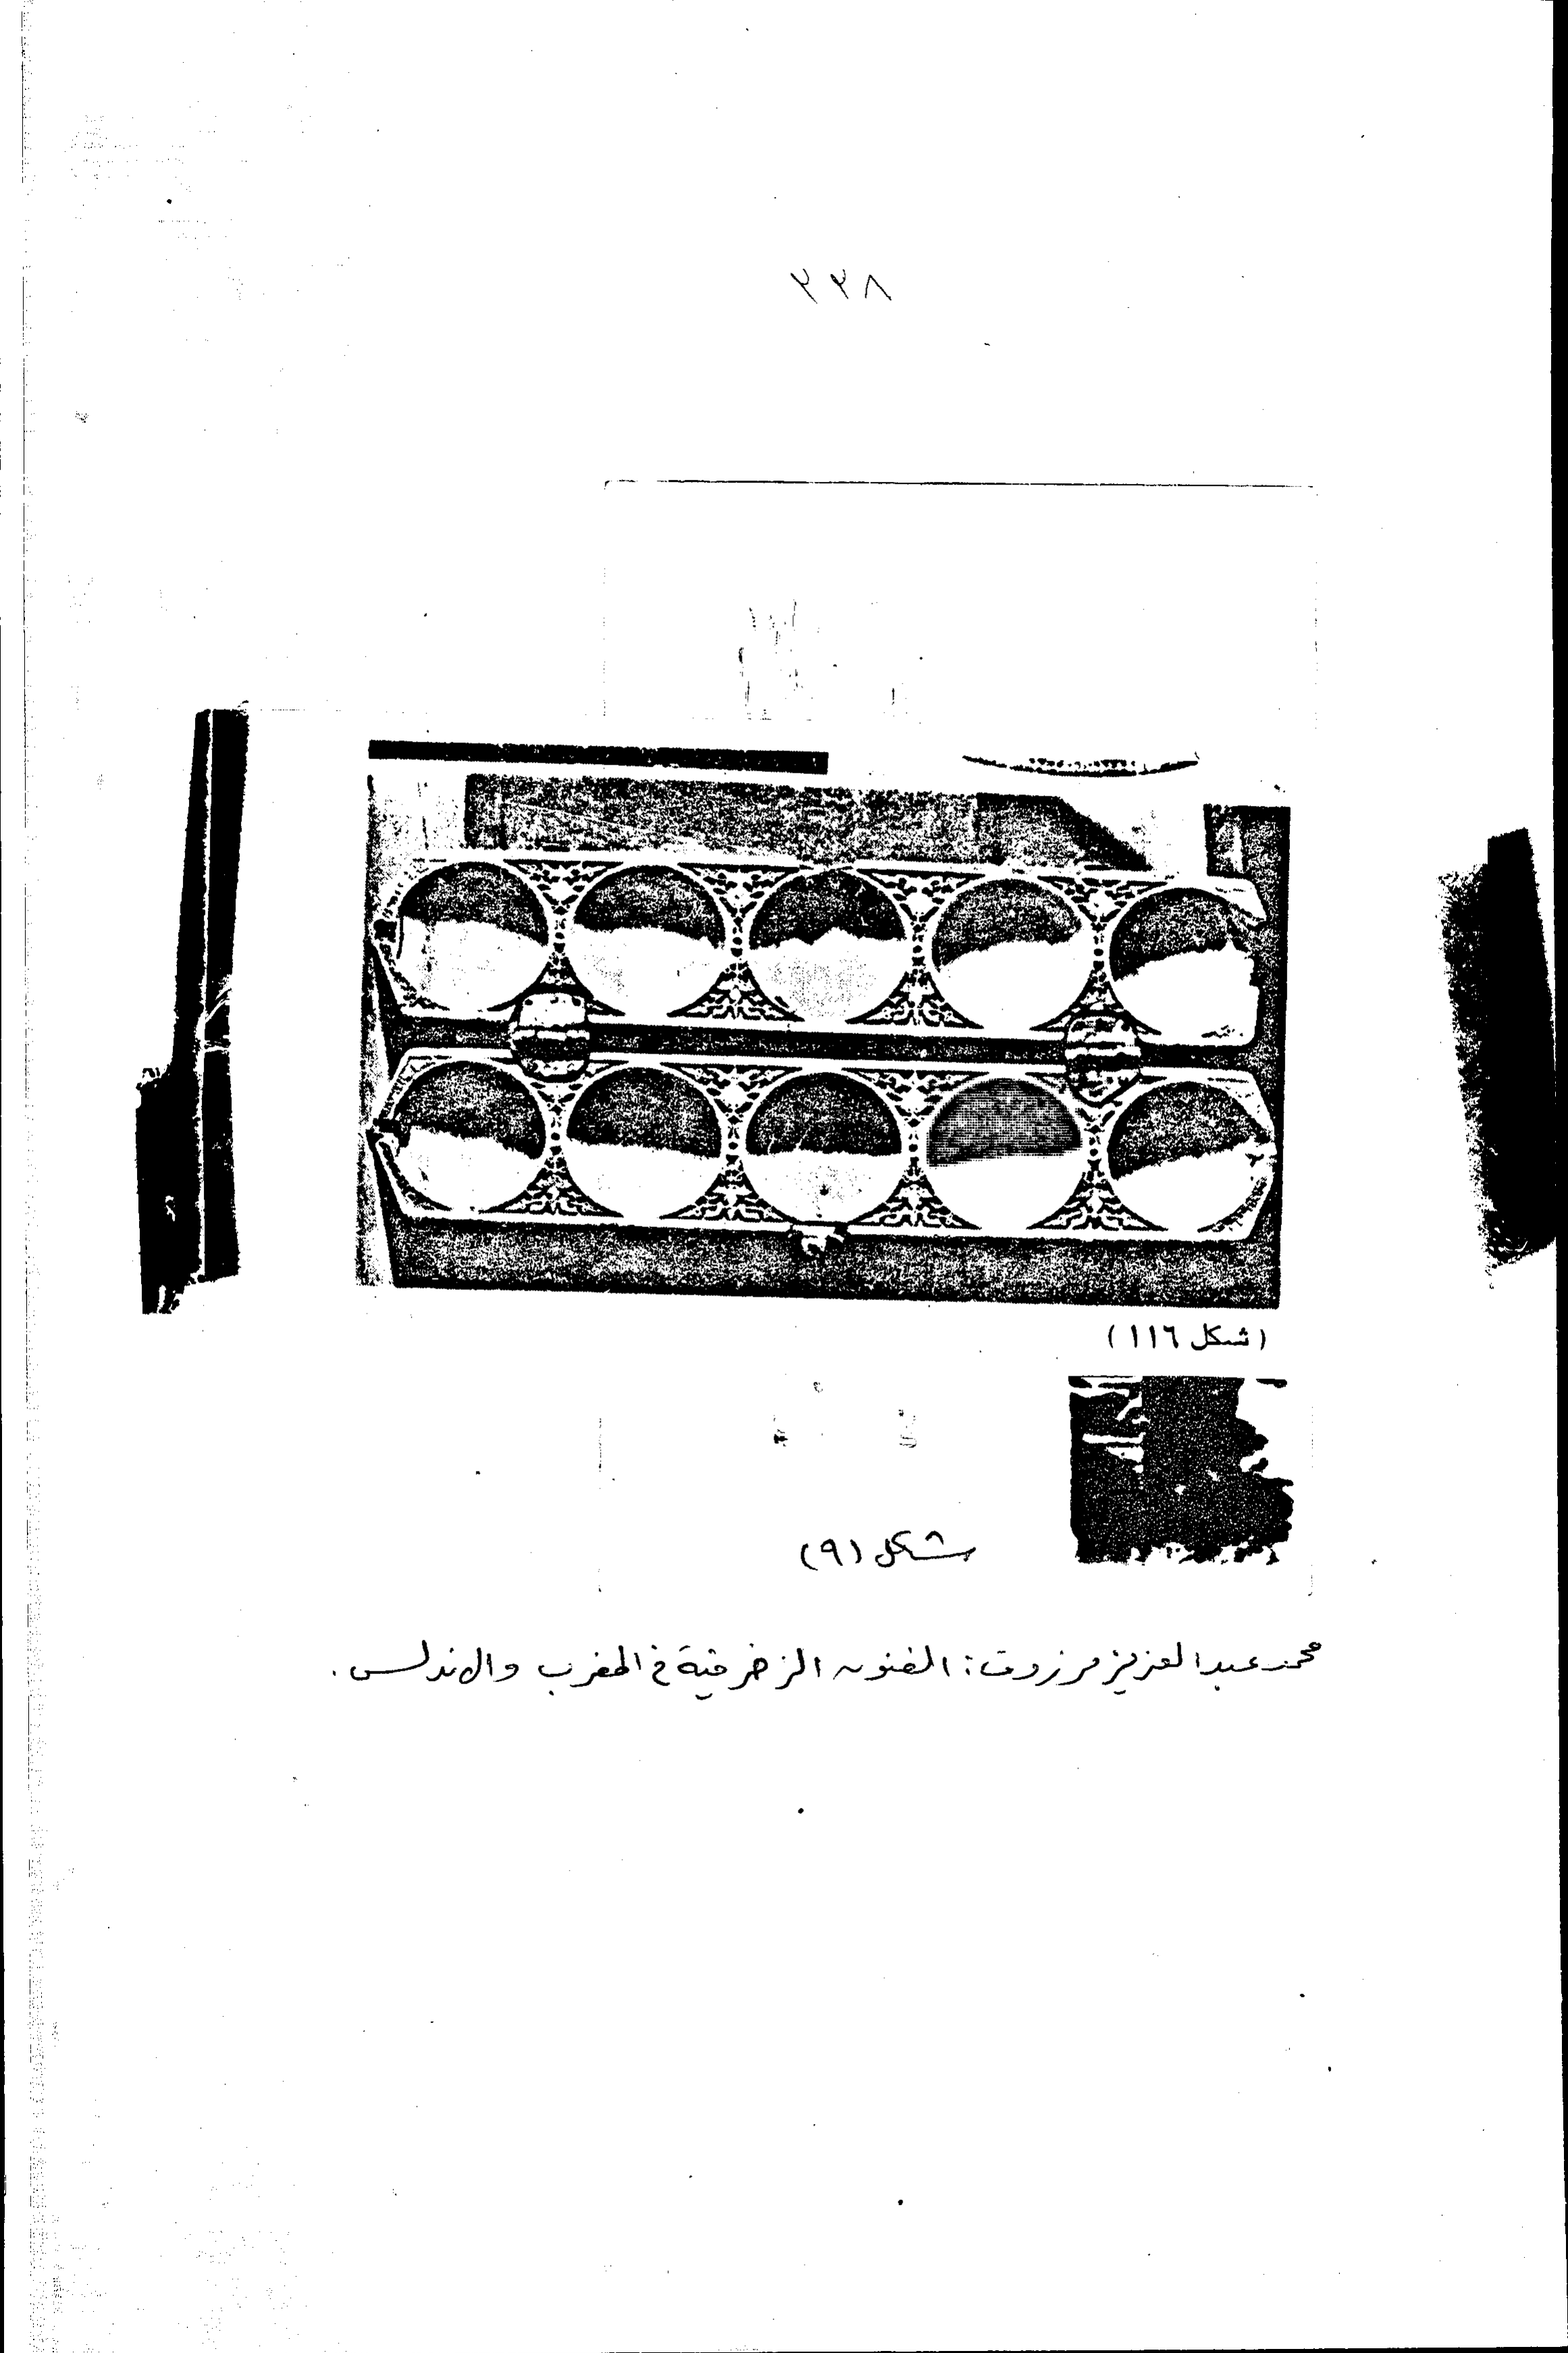 ٢٢٨
(شكل ١١٦)
شكل (٩)
محمد عبد العزيز مرزوق: الفنون الزخرفية في المغرب والاندلس.